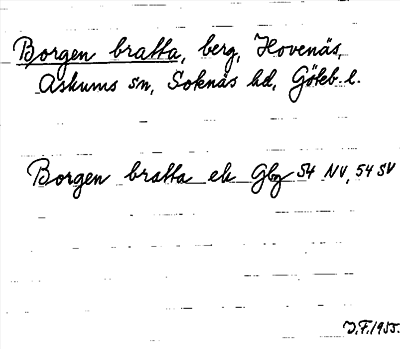 Borgen bratta, berg, Hovenäs,
Askums sn, Sotenäs hd, Göteb. l.
Borgen bratta ek Gbg 54 NV, 54 SV
J.F. 1955.